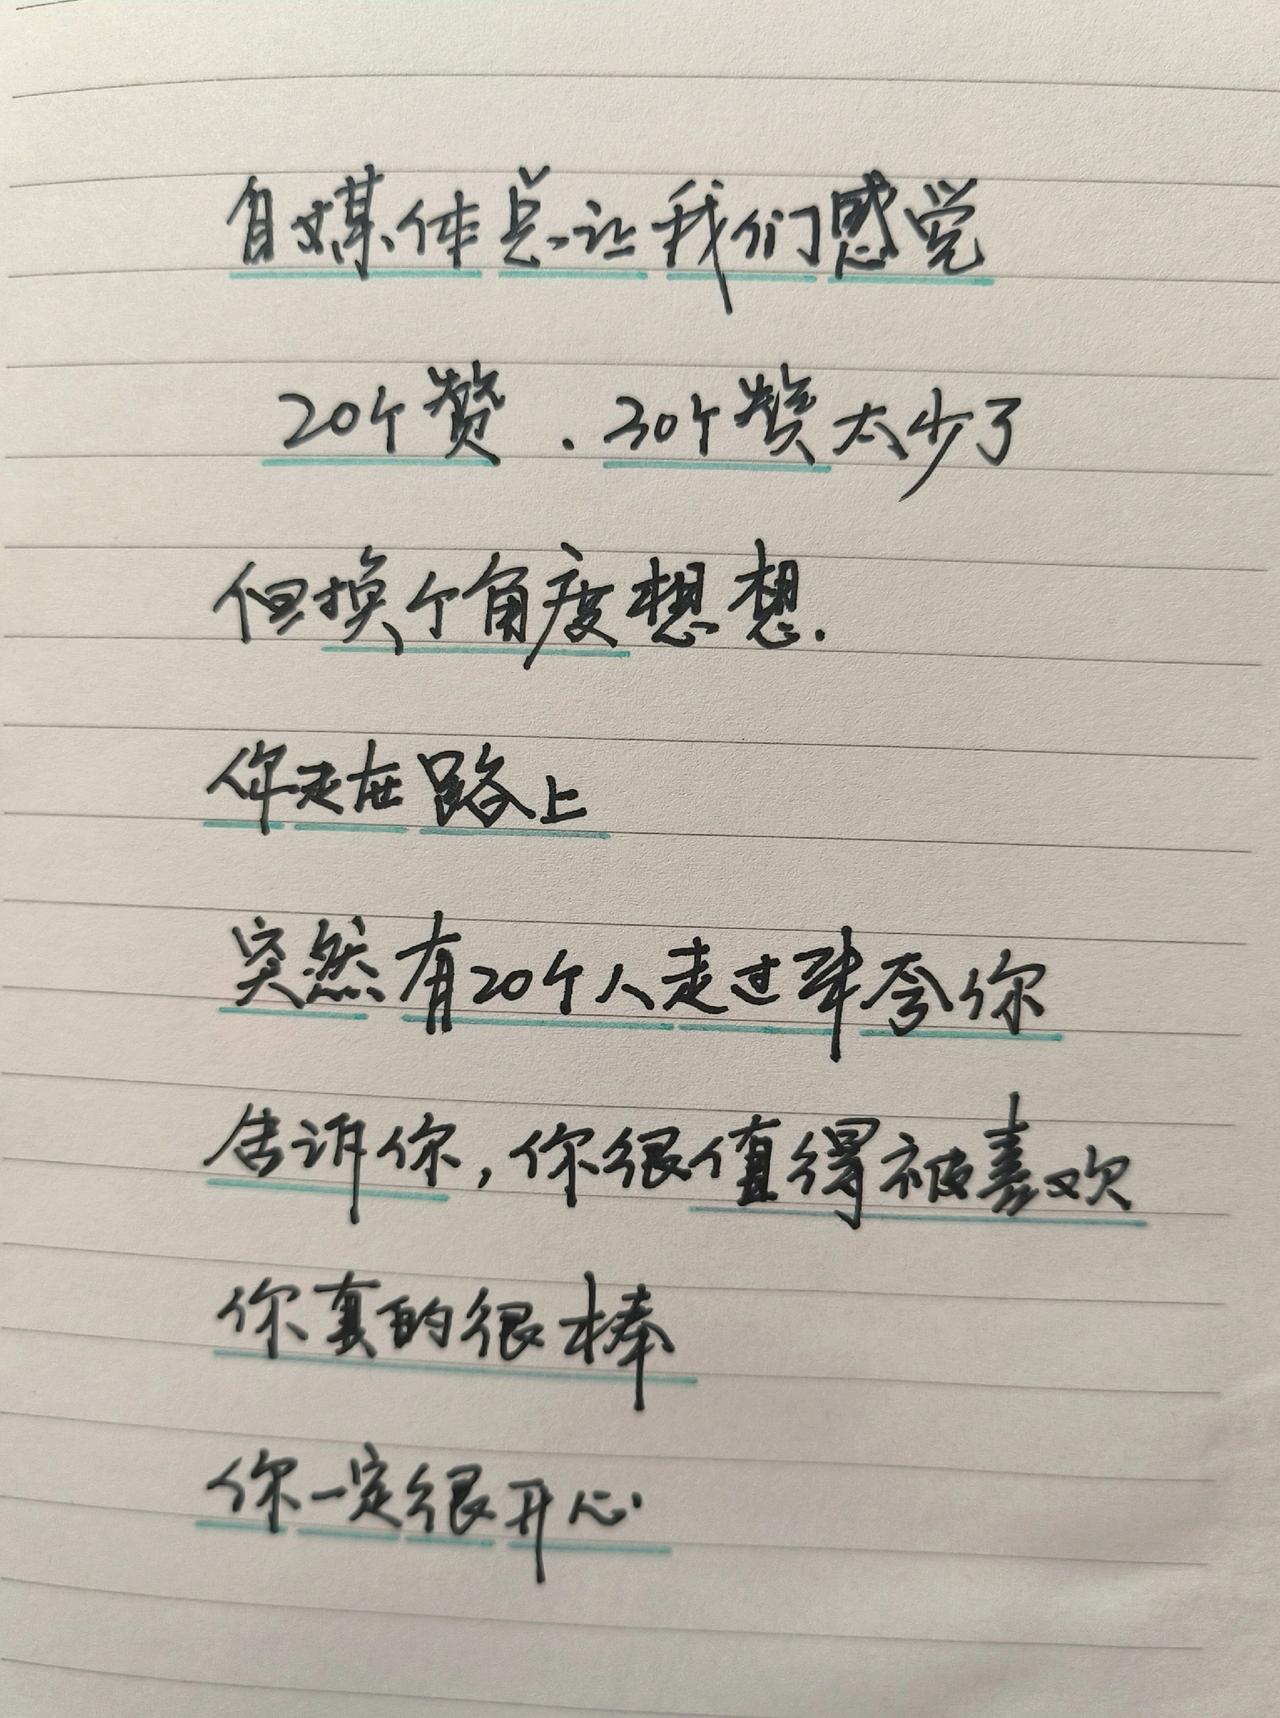 自媒体总让我们感觉
20个赞、30个赞太少了
但换个角度想想.
你走在路上
突然有20个人走过来夸你
告诉你,你很值得被喜欢
你真的很棒
你一定很开心